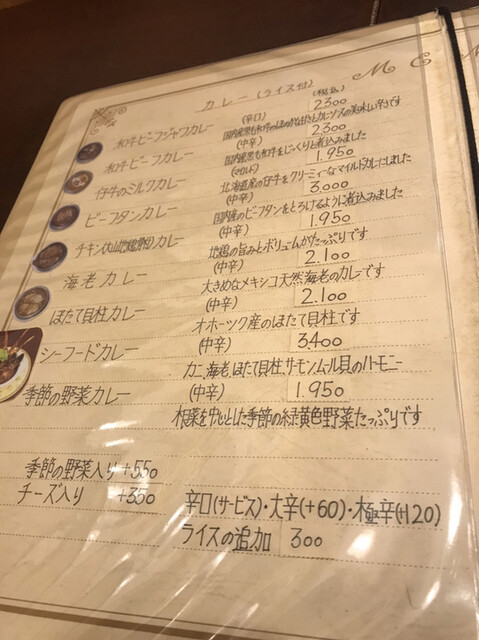 MC
カレー(ライス付)
(税込)
和牛ビーフジャワカレー (辛口) 2300
国内産黒毛和牛のほのかな甘さとカレーソースの美味しい辛さです
和牛ビーフカレー (中辛) 2300
国内産黒毛和牛をじっくりと煮込みました
仔牛のミルクカレー (マイルド) 1.950
北海道産の仔牛をクリーミィーなマイルドカレーにしました
ビーフタンカレー (中辛) 3.000
国内産のビーフタンをとろけるように煮込みました
チキン(大山地鶏)カレー (中辛) 1.950
地鶏の旨みとボリュームがたっぷりです
海老カレー (中辛) 2.100
大きめなメキシコ天然海老のカレーです
ほたて貝柱カレー (中辛) 2.100
オホーツク産のほたて貝柱です
シーフードカレー (中辛) 3400
カニ、海老、ほたて貝柱、サーモン、ムール貝のハーモニー
季節の野菜カレー (中辛) 1.950
根菜を中心とした季節の緑黄色野菜たっぷりです
季節の野菜入り +550
チーズ入り +350
辛口(サービス)・大辛(+60)・極辛(+120)
ライスの追加 300